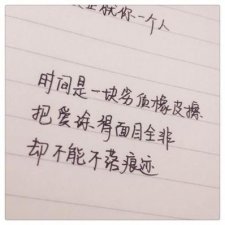 你一个人
时间是一块劣质橡皮擦
把爱涂得面目全非
却不能不落痕迹